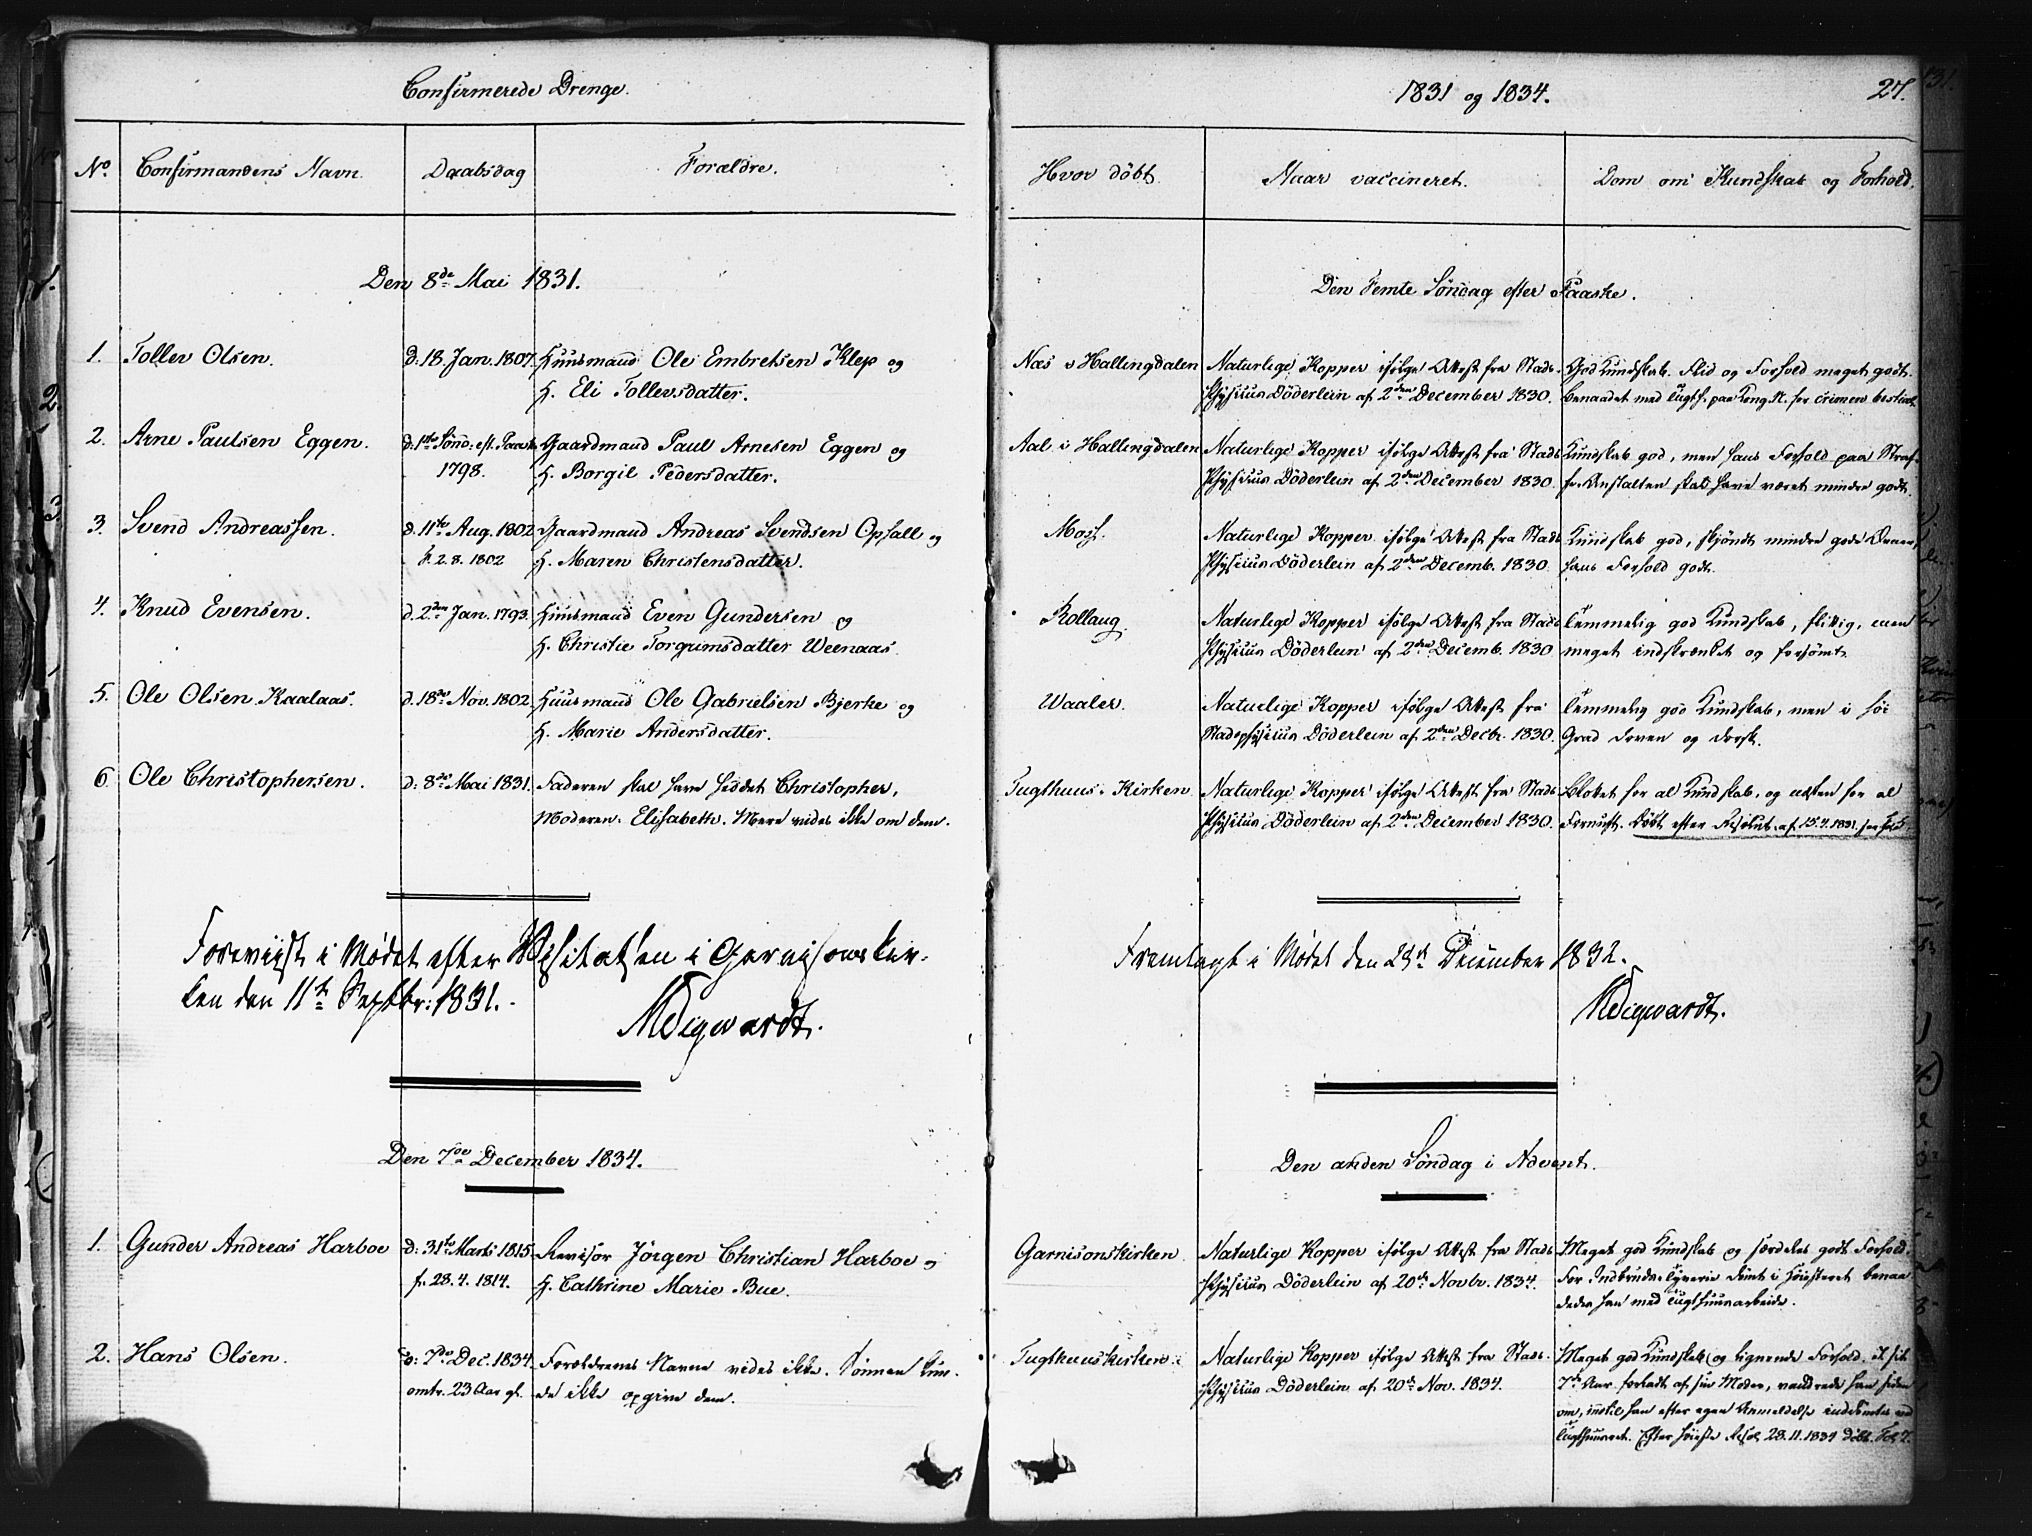 Confirmerede Drenge.
No. Confirmandens Navn. Daabsdag Forældre.
Den 8de Mai 1831.
1. Tollev Olsen. d: 18. Jan. 1807. Huusmand Ole Embretsen Klep og
H. Eli Tollevsdatter.
2. Arne Paulsen Eggen. d. 1ste Sönd: eft. Paaske Gaardmand Paul Arnesen Eggen og
1798. H. Borgil Pedersdatter.
3. Svend Andreassen. d. 11te Aug. 1802 Gaardmand Andreas Svendsen Opsall og
f. 2. 8. 1802 H. Maren Christensdatter.
4. Knud Evensen. d. 2den Jan. 1793. Huusmand Even Gundersen og
H. Christie Torgrimsdatter Weenaas.
5. Ole Olsen Kaalaas. d. 18de Nov. 1802. Huusmand Ole Gabrielsen Bjerke og
H. Marie Andersdatter.
6. Ole Christophersen. d: 8de Mai 1831. Faderen skal have heddet Christopher,
Moderen: Elisabeth. Mere vides ikke om dem.
Foreviist i Mødet efter Visitatsen i Garnisonskir-
ken den 11te Septbr: 1831.
Den 7de December 1834.
1. Gunder Andreas Harboe d: 31te Marts 1815 Revisor Jörgen Christian Harboe og
f. 28. 4. 1814. H. Cathrine Marie Bue.
2. Hans Olsen. D: 7de Dec. 1834. Forældrenes Navne vides ikke. Sönnen kun-
omtr. 23 Aar gl. de ikke opgive dem.
1831 og 1834. 27.
Hvor döbt. Naar vaccineret. Dom om Kundskab og Forhold.
Den Femte Söndag efter Paaske.
Næs i Hallingdalen Naturlige Kopper ifölge Attest fra Stads- God Kundskab. Flid og Forhold meget godt.
Physicus Döderlein af 2den December 1830. Benaadet med Tugth. paa Kong. N. for crimen bestial.
Aal i Hallingdalen Naturlige Kopper ifölge Attest fra Stads Kundskab god, men hans Forhold paa Straf-
Physicus Döderlein af 2den December 1830. fe-Anstalten skal have været mindre godt.
Moss. Naturlige Kopper ifölge Attest fra Stads Kundskab god, skjöndt mindre gode Evner,
Physicus Döderlein af 2den Decemb. 1830. hans Forhold godt.
Rollaug. Naturlige Kopper ifölge Attest fra Stads Temmelig god Kundskab, flittig, men
Physicus Döderlein af 2den Decemb. 1830 meget indskrænket og forsömt.
Waaler. Naturlige Kopper ifölge Attest fra Temmelig god Kundskab, men i höi
Stadsphysicus Döderlein af 2den Decbr. 1830. Grad doven og dorsk.
Tugthuus-Kirken Naturlige Kopper ifölge Attest fra Stads Blottet for al Kundskab, og næsten for al
Physicus Döderlein af 2den December 1830. Fornuft. Döbt efter Resolut. af 15. 4. 1831.
Fremlagt i Mødet den 28de December 1832.
Den anden Söndag i Advent.
Garnisonskirken. Naturlige Kopper ifölge Attest fra Stads Meget god Kundskab og særdeles godt Forhold.
Physicus Döderlein af 20de Novbr. 1834. For Indbruds-Tyverie dömt i Höiesteret benaa-
dedes han med Tugthuusarbeide.
Tugthuuskirken. Naturlige Kopper ifölge Attest fra Stads- Meget god Kundskab og lignende Forhold.
Physicus Döderlein af 20de Nov. 1834. 7de Aar forladt af sin Moder, vandrede han siden
om, indtil han efter egen Anmeldelse
Tugthuuset. Efter höieste Resol. 28. 11. 1834 döbt. Fol. 7.